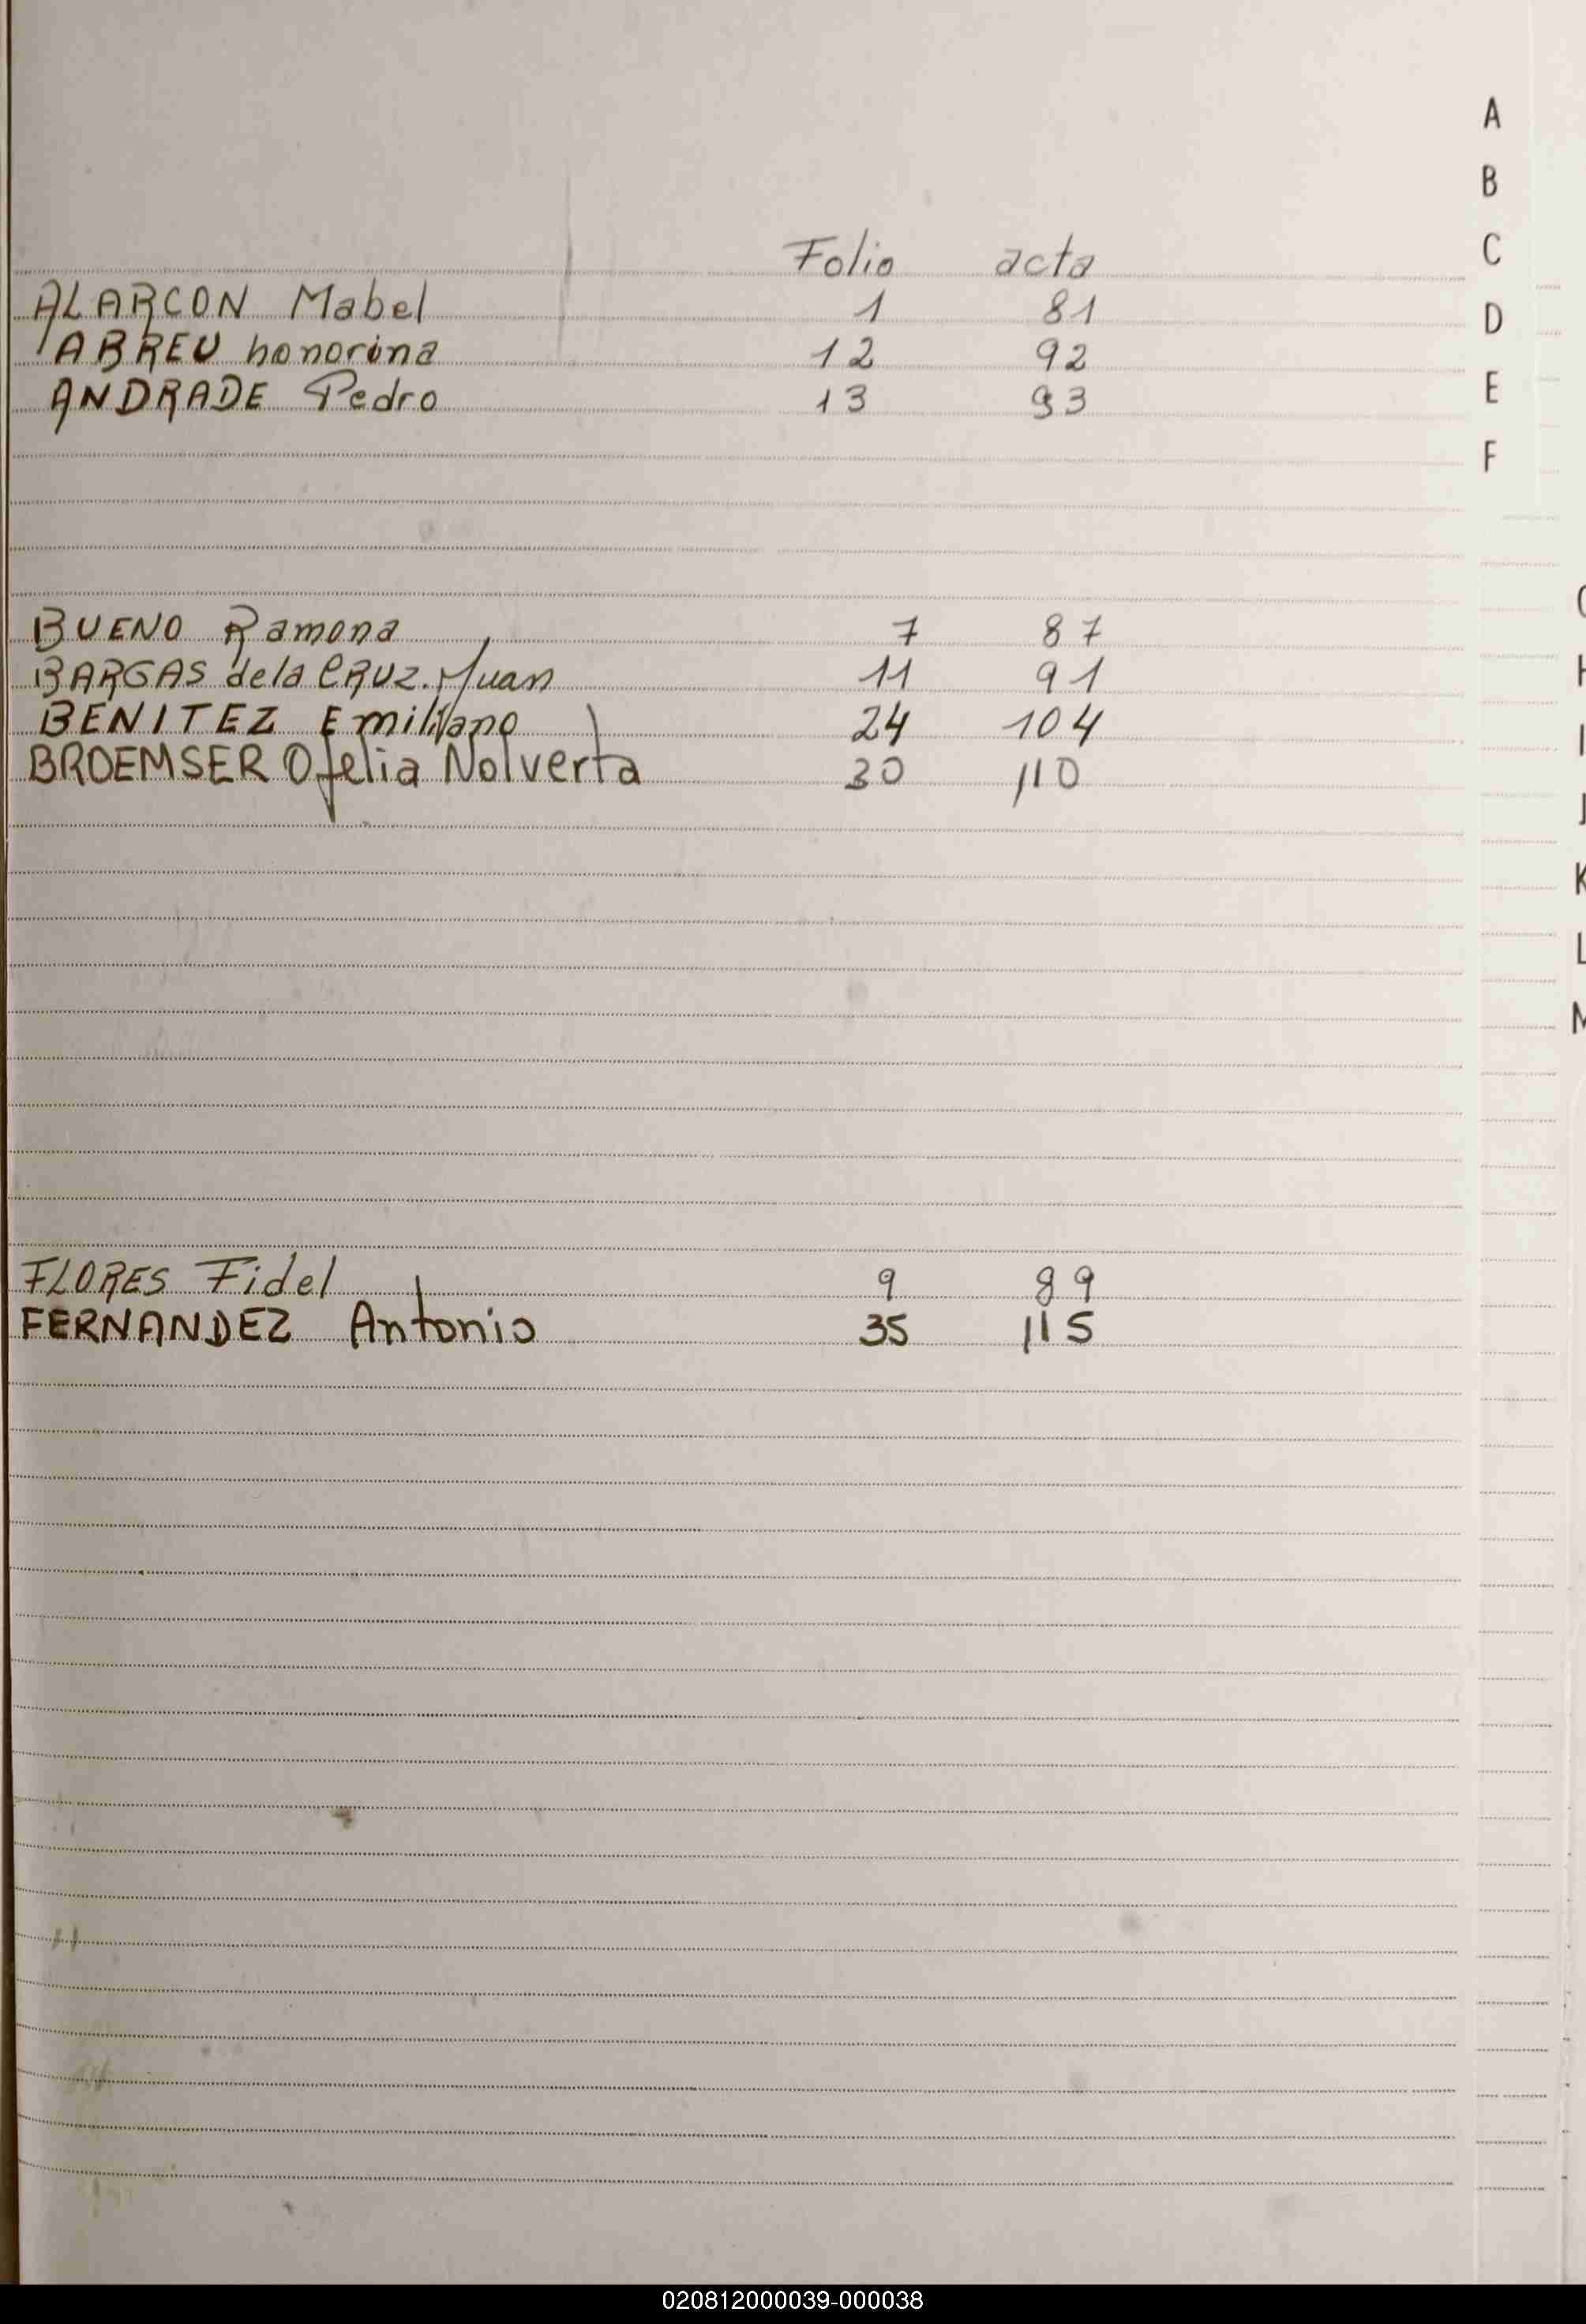 A
B
C
D
E
F
Folio acta
ALARCON Mabel 1 81
ABREU honorina 12 92
ANDRADE Pedro 13 93
BUENO Ramona 7 87
BARGAS de la CRUZ. Juan 11 91
BENITEZ Emiliano 24 104
BROEMSER Ofelia Nolverta 30 110
FLORES Fidel 9 89
FERNANDEZ Antonio 35 115
H
I
J
K
L
M
020812000039-000038